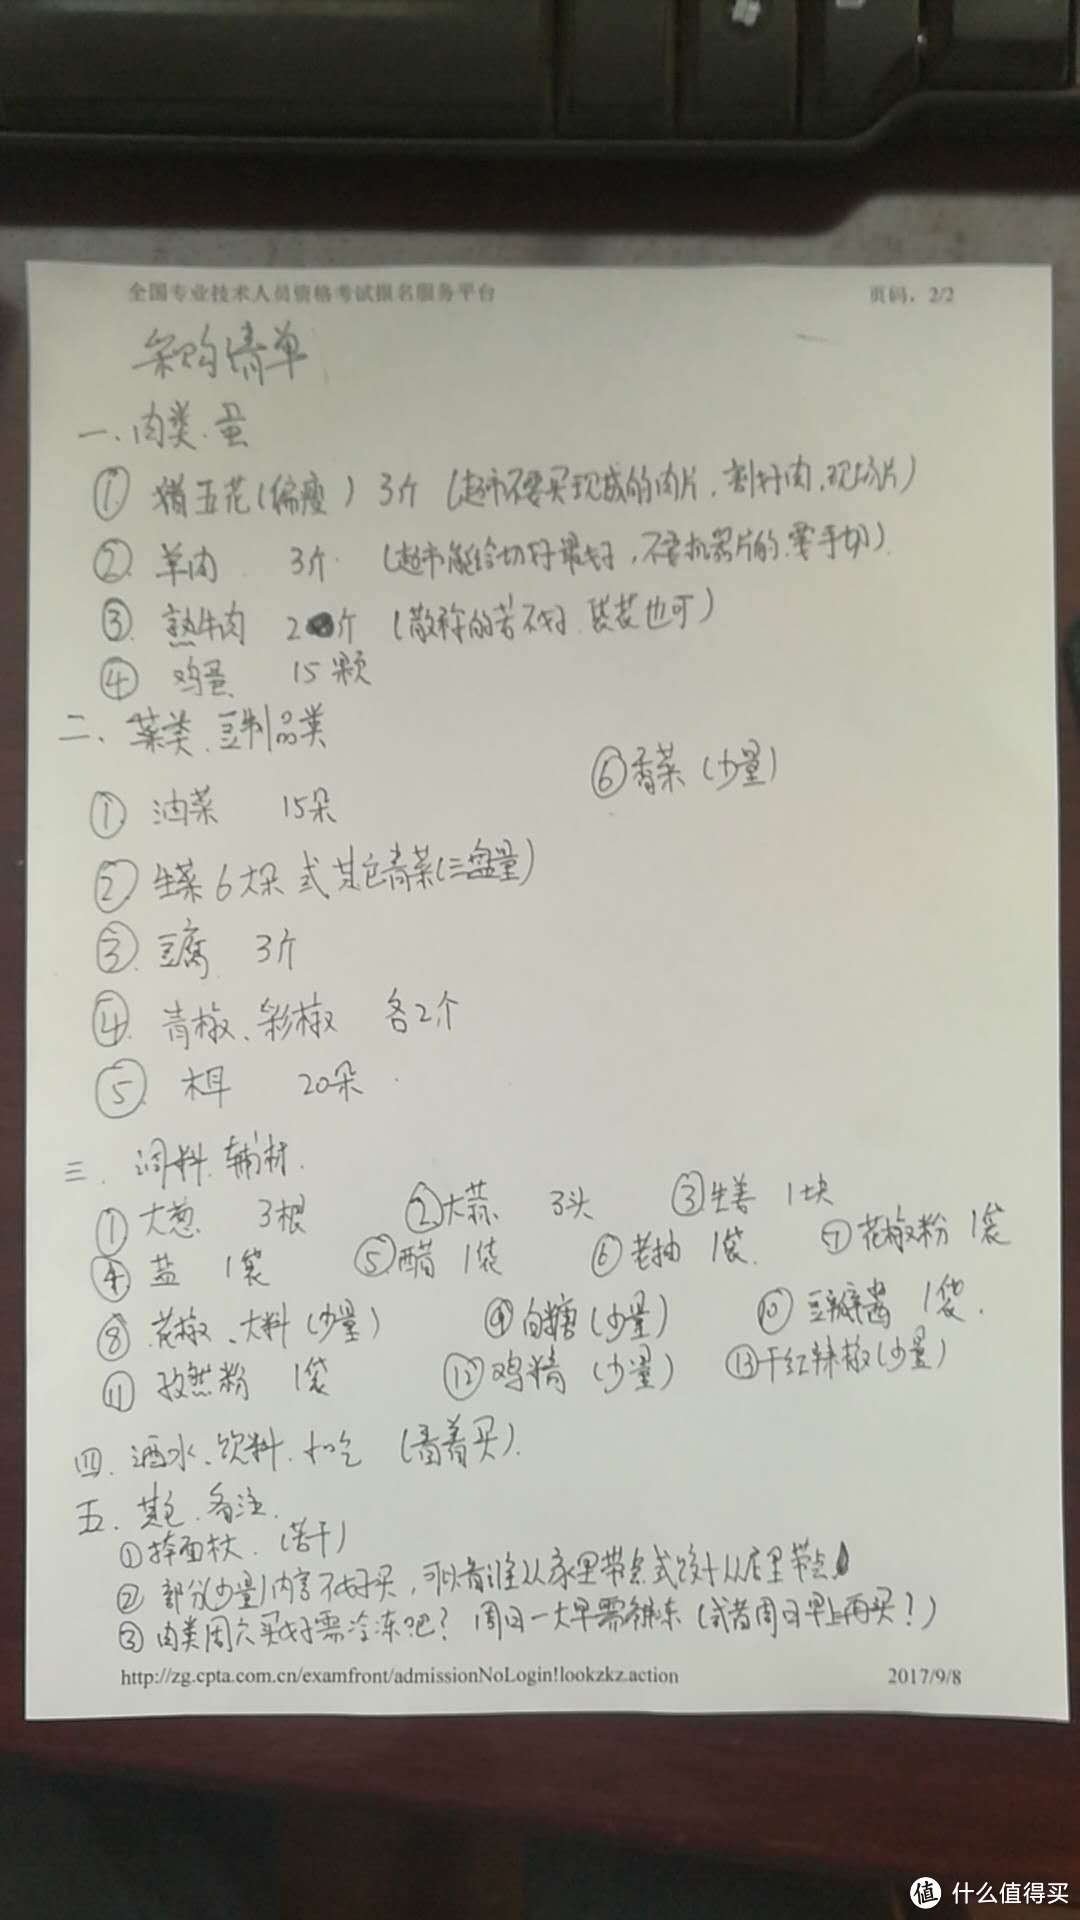 全国专业技术人员资格考试报名服务平台 页码，2/2
采购清单
一、肉类、蛋
① 猪五花(偏瘦) 3斤 (超市不要买现成的肉片，割好肉，现场片)
② 羊肉 3斤 (超市能给切好最好，不要机器片的，要手切)
③ 熟牛肉 2斤 (散称的若不好、袋装也可)
④ 鸡蛋 15颗
二、菜类、豆制品类
⑥香菜 (少量)
① 油菜 15朵
② 生菜 6大朵 或其它青菜(三盘量)
③ 豆腐 3斤
④ 青椒、彩椒 各2个
⑤ 木耳 20朵
三、调料、辅材
① 大葱 3根 ②大蒜 3头 ③生姜 1块
④ 盐 1袋 ⑤醋 1袋 ⑥老抽 1袋 ⑦花椒粉 1袋
⑧ 花椒、大料(少量) ⑨白糖(少量) ⑩豆瓣酱 1袋
⑪ 孜然粉 1袋 ⑫鸡精 (少量) ⑬干红辣椒(少量)
四、酒水、饮料、小吃 (看着买)
五、其它、备注
①擀面杖 (若干)
② 部分(少量)内容不好买，可以看谁从家里带点或设计从店里带点
③ 肉类周六买好需冷冻吧？周日一大早需排冻(或者周日早上再买？)
http://zg.cpta.com.cn/examfront/admissionNoLogin!lookzkz.action 2017/9/8
值 什么值得买